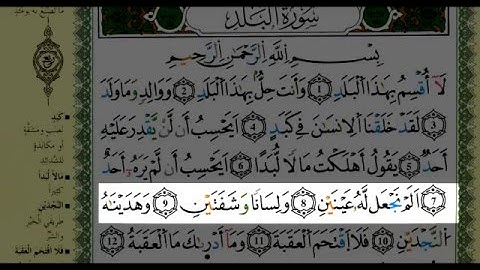 سُورَةُ الْبَلَدِ
بِسْمِ اللَّهِ الرَّحْمَٰنِ الرَّحِيمِ
لَا أُقْسِمُ بِهَٰذَا الْبَلَدِ ١ وَأَنتَ حِلٌّ بِهَٰذَا الْبَلَدِ ٢ وَوَالِدٍ وَمَا وَلَدَ
٣ لَقَدْ خَلَقْنَا الْإِنسَانَ فِي كَبَدٍ ٤ أَيَحْسَبُ أَن لَّن يَقْدِرَ عَلَيْهِ
أَحَدٌ ٥ يَقُولُ أَهْلَكْتُ مَالًا لُّبَدًا ٦ أَيَحْسَبُ أَن لَّمْ يَرَهُ أَحَدٌ
٧ أَلَمْ نَجْعَل لَّهُ عَيْنَيْنِ ٨ وَلِسَانًا وَشَفَتَيْنِ ٩ وَهَدَيْنَاهُ
النَّجْدَيْنِ ١٠ فَلَا اقْتَحَمَ الْعَقَبَةَ ١١ وَمَا أَدْرَاكَ مَا الْعَقَبَةُ ١٢
كَبَدٍ
نَصَبٍ وَمَشَقَّةٍ
أو مكابدة
للشدائد
مَالًا لُّبَدًا
كثيرًا
النَّجْدَيْنِ
طريقي الخير
فَلَا اقْتَحَمَ الْعَقَبَةَ